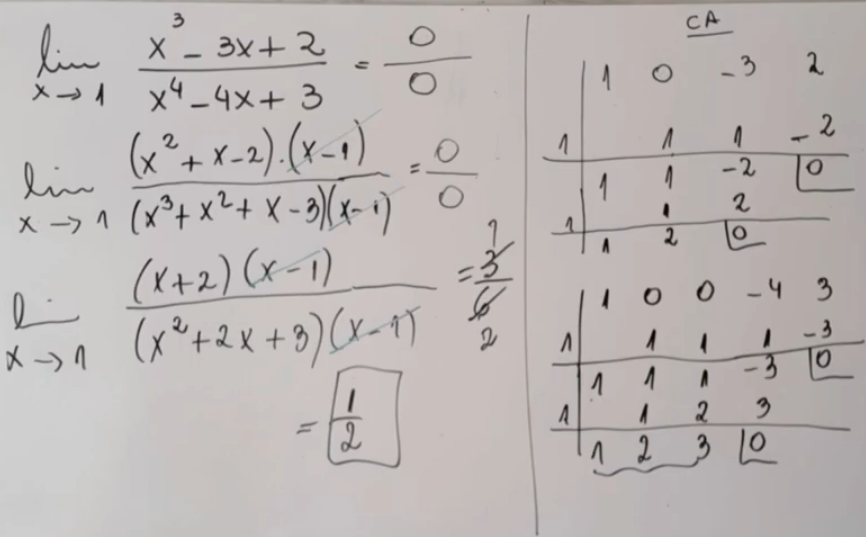 lim x→1 (x³ - 3x + 2)/(x⁴ - 4x + 3) = 0/0
lim x→1 (x² + x - 2).(x - 1)/(x³ + x² + x - 3)(x - 1) = 0/0
lim x→1 (x + 2)(x - 1)/(x² + 2x + 3)(x - 1) = 3/6 1 2
= 1/2
CA
1 0 -3 2
1 1 1 -2
1 1 -2 0
1 1 2
1 2 0
1 0 0 -4 3
1 1 1 1 -3
1 1 1 -3 0
1 1 2 3
1 2 3 0